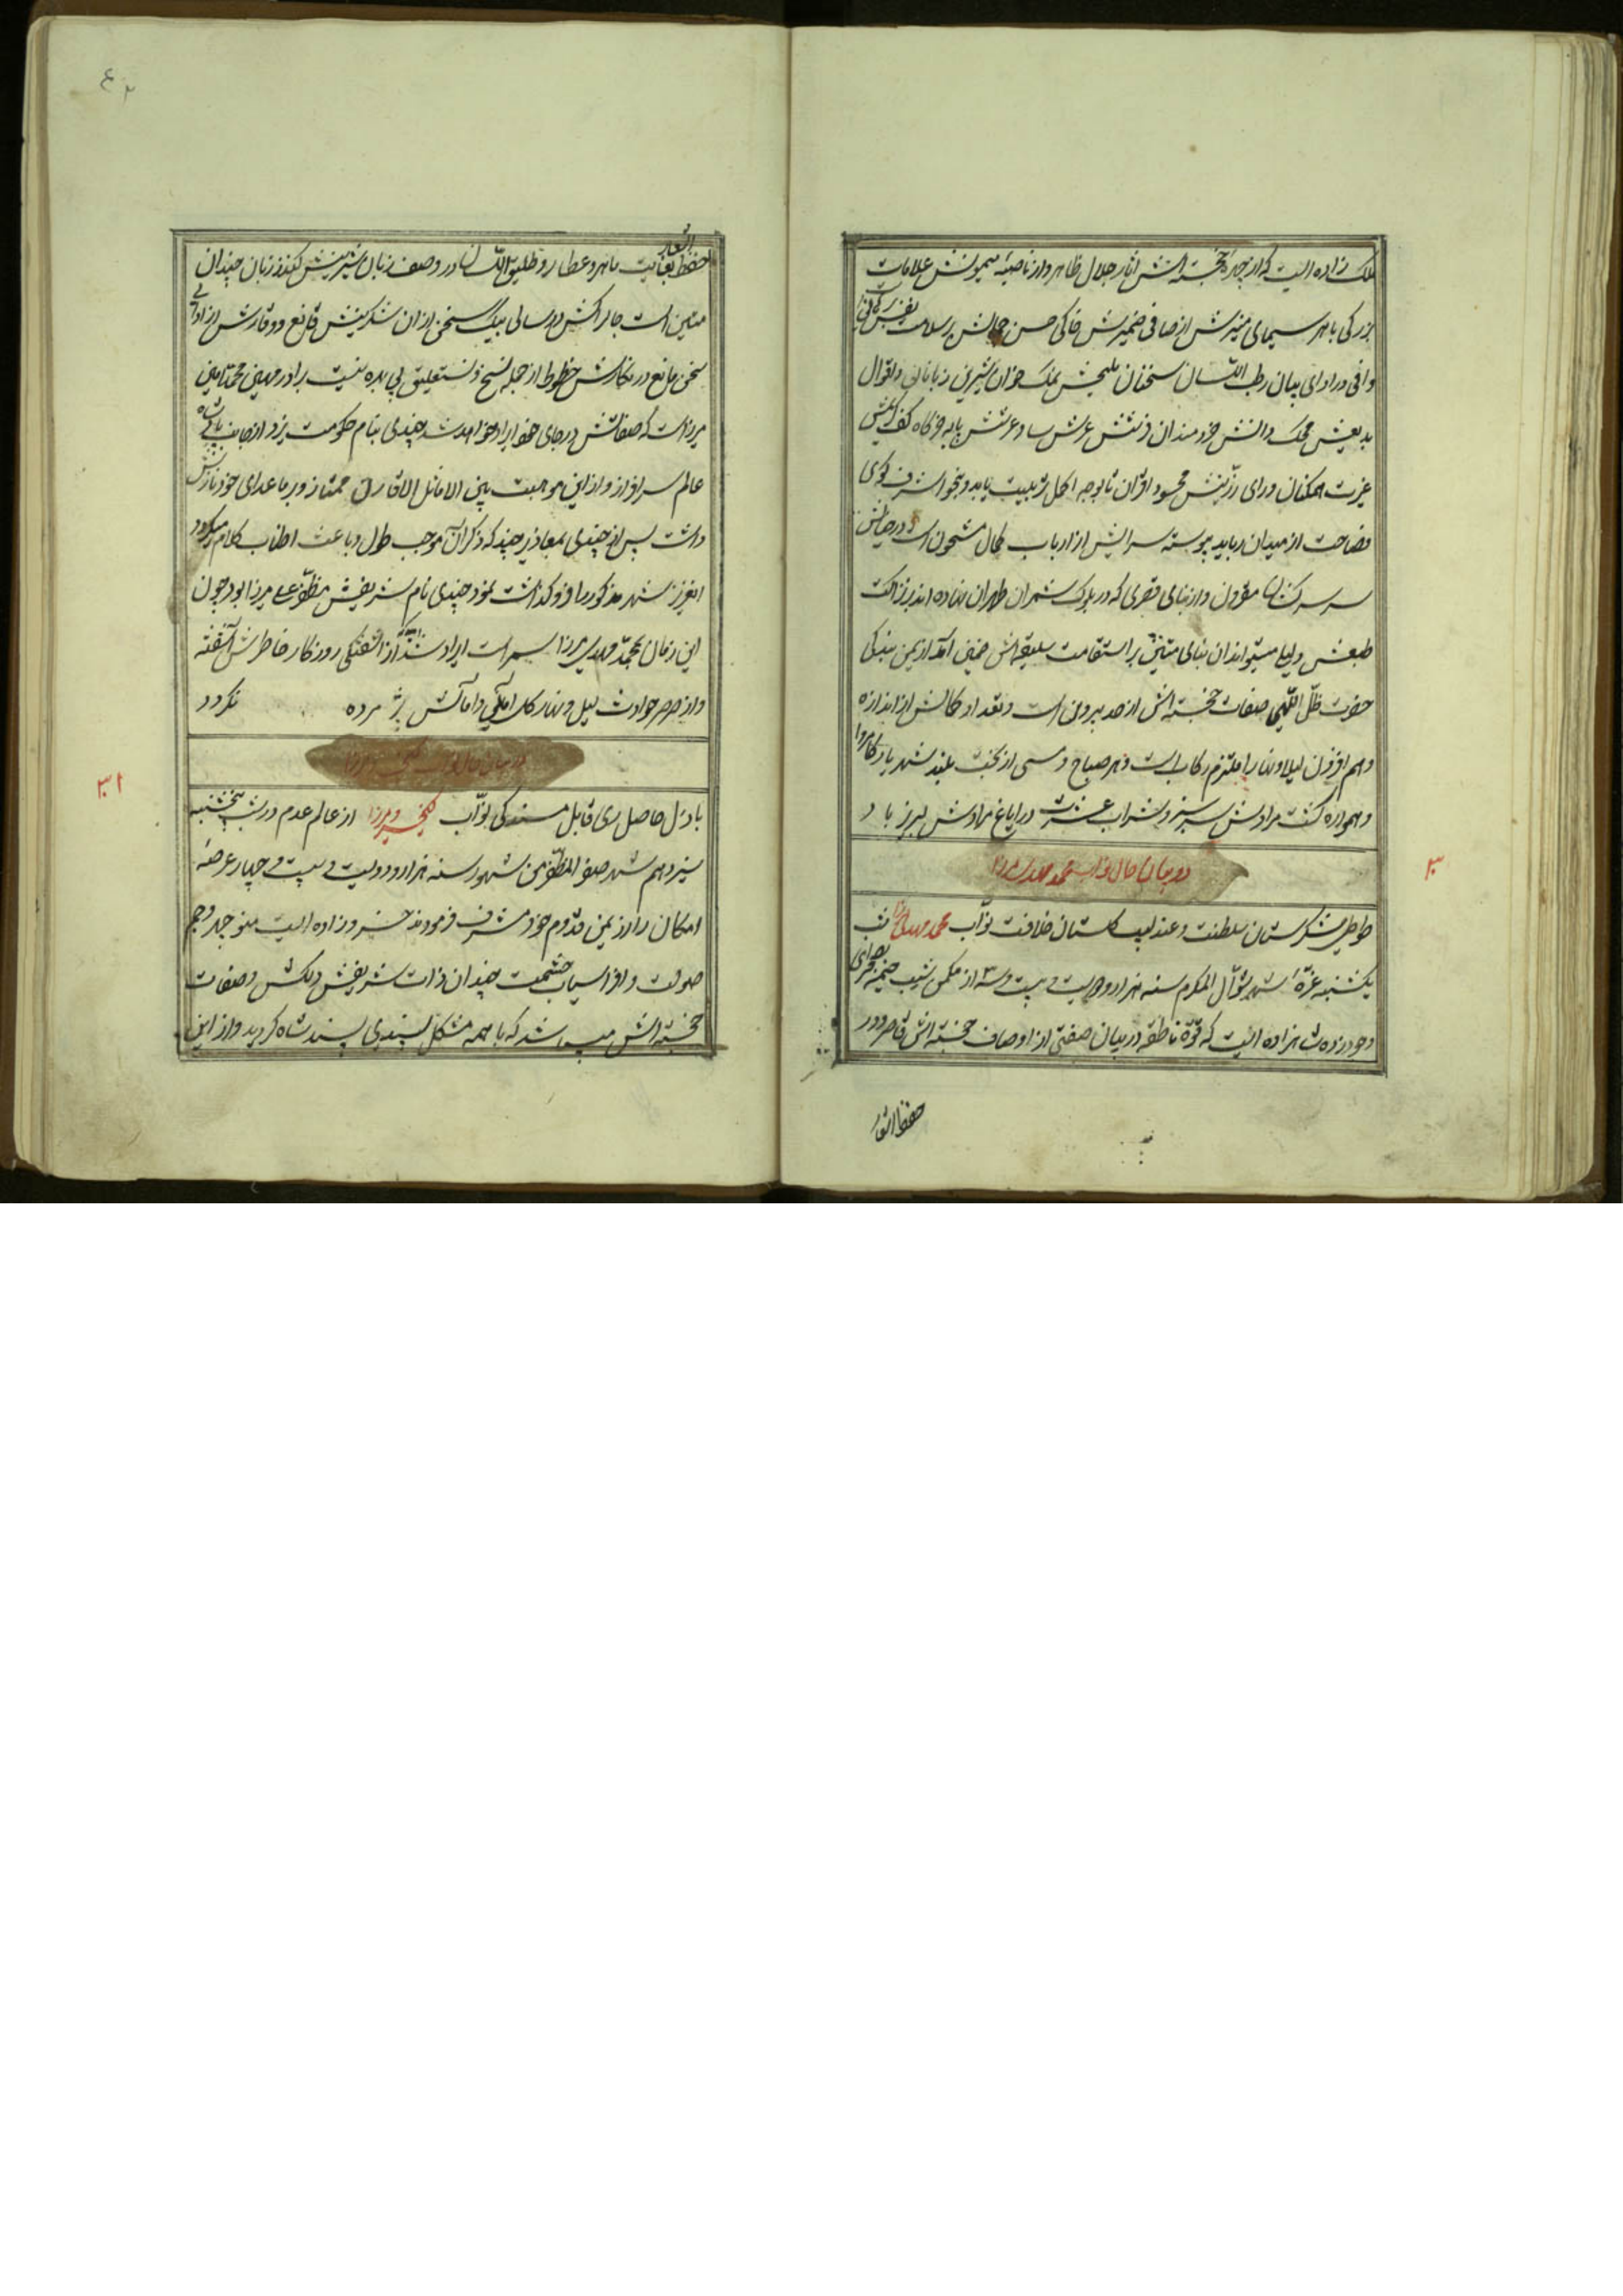 ملک زاده ایست که از چهره خجسته اش آثار جلال ظاهر و از ناصیه میمونش علامات
بزرگی باهر سیمای منیرش از صافی ضمیرش حاکی حسن جمالش بر سلامت نفس
وافی در ادای بیان رطب اللسان سخنان ملیحش نمک خوان شیرین زبانان و اقوال
بدیعش محک دانش خردمندان ذهنش عرش سا و عرشش پایه
عزت همکنان و رای رزینش محسود اقران تا بوجه اکمل تربیت یابد و بنحو اشرف گوی
فصاحت از میدان رباید پیوسته سرایش از ارباب کمال مشحون است و در
مقرون و از بنای قصری که در بلوک شمران طهران نهاده اند بر نزاکت
طبعش دلیلها میتواند آن بنای متین بر استقامت سلیقه اش آمد از یمن بندگی
حضرت ظل اللهی صفات خجسته اش از حد بیرون است و تعداد کمالش از اندازه
وهم افزون لیلا و نهارا ملتزم رکاب است و هر صباح و مسی از بخت بلند شهریار کامروا
و همواره کشت مرادش سبز و شراب عشرت در ایاغ مرادش لبریز باد
در بیان حال نواب محمد مهدی میرزا
۳۰
طوطی شکرستان سلطنت و عندلیب گلستان خلافت نواب محمد مهدی میرزا شب
یکشنبه غره شهر شوال المکرم سنه هزار و دویست و بیست و سه از مکمن غیب خیمه بصحرای
وجود زده شاهزاده ایست که قوه ناطقه در بیان صفتی از اوصاف خجسته اش قاصر و در
حفظ الغار
حفظ الغار بغایت ماهر و عطارد طلیق اللسان در وصف زبان شیرینش کند زبان چندان
متین است چالاکش در سالی بیک سخن از آن شکرینش قانع و وقارش از ادای
سخن مانع در نگارش خطوط از جمله نسخ و نستعلیق بی بهره نیست برادر مهین محمدتقی
میرزاست که صفاتش در جای خود ایراد خواهد شد چندی بنام حکومت یزد از جانب پادشاه
عالم سرافراز و از این موهبت بین الاماثل و الاقران ممتاز و بر ما عدای خود نازش
داشت پس از چندی بمعاذیر چند که ذکر آن موجب طول و باعث اطناب کلام میگردد
شهر مذکور را فروگذاشت نمود چندی نام شریفش مظفر علی میرزا بود چون
این زمان محمد مهدی میرزا سمر است ایراد شد از آشفتگی روزگار خاطرش آشفته
و از صرصر حوادث لیل و نهار گل آمال و امانیش پژمرده نگردد
در بیان حال نواب کیخسرو میرزا
۳۱
باذل حاصل ری قابل مسند کی نواب کیخسرو میرزا از عالم عدم در شب پنجشنبه
سیزدهم شهر صفر المظفر من شهور سنه هزار و دویست و بیست و چهار عرصه
امکان را از یمن قدوم خود مشرف فرمودند خسرو زاده ایست منوچهر و جم
صولت و افراسیاب حشمت چندان ذات شریفش دلکش و صفات
خجسته اش میباشد که با همه مشکل پسندی پسند شاه گردید و از این